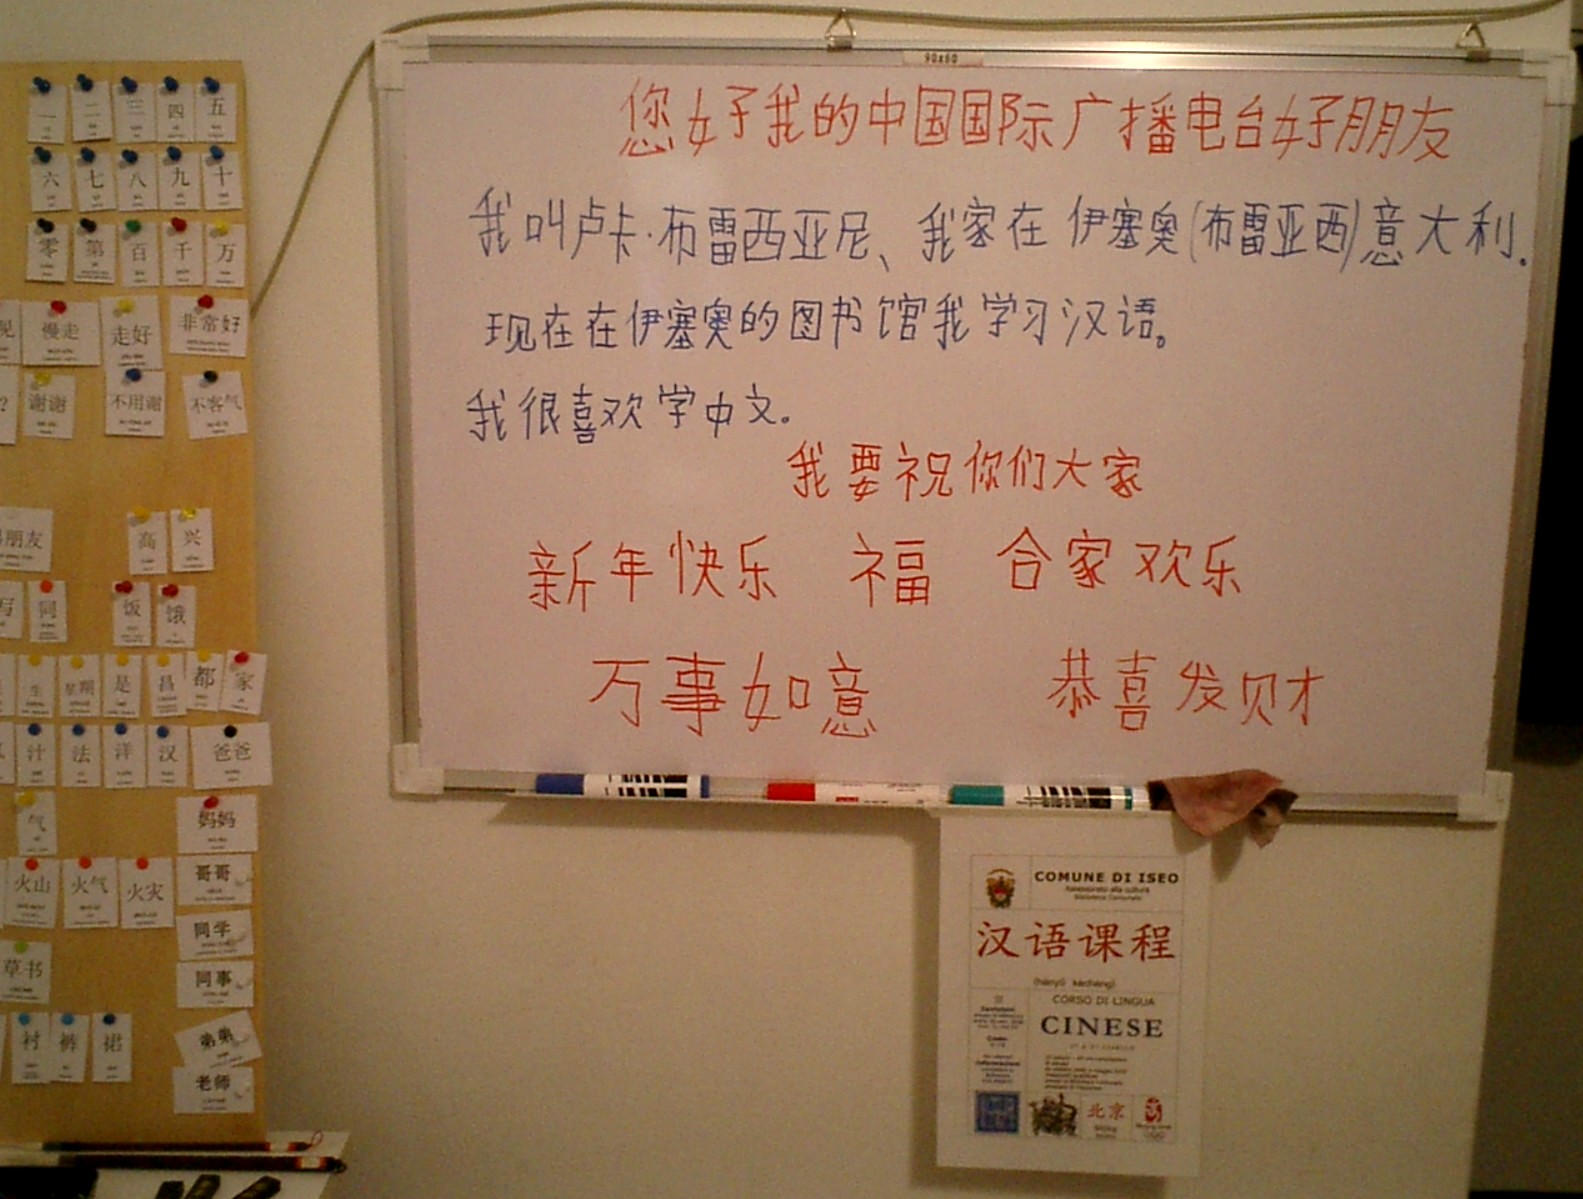 90x60
您好我的中国国际广播电台好朋友
我叫卢卡·布雷西亚尼、我家在伊塞奥(布雷亚西)意大利.
现在在伊塞奥的图书馆我学习汉语。
我很喜欢学中文。
我要祝你们大家
新年快乐 福 合家欢乐
万事如意 恭喜发财
一 二 三 四 五
六 七 八 九 十
零 第 百 千 万
见 慢走 走好 非常好
? 谢谢 不用谢 不客气
朋友 高 兴
写 同 饭 饿
生 星期 是 昌 都 家
汁 法 洋 汉 爸爸
气 妈妈
火山 火气 火灾 哥哥
同学
草书 同事
衬 裤 裙 弟弟
老师
COMUNE DI ISEO
Assessorato alla cultura
Biblioteca Comunale
汉语课程
(hànyǔ kèchéng)
CORSO DI LINGUA
CINESE
北京